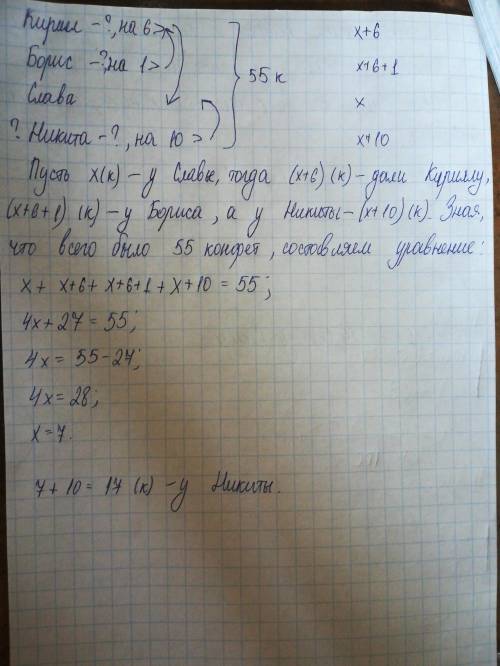 Кирилл -?, на 6> x+6
Борис -?, на 1> x+6+1
55 к
Слава x
? Никита -?, на 10> x+10
Пусть x(к) - у Славы, тогда (x+6) (к) - дали Кириллу,
(x+6+1) (к) - у Бориса, а у Никиты - (x+10) (к). Зная,
что всего было 55 конфет, составляем уравнение:
x + x+6 + x+6+1 + x+10 = 55;
4x+27 = 55;
4x = 55-27;
4x = 28;
x = 7.
7 + 10 = 17 (к) - у Никиты.